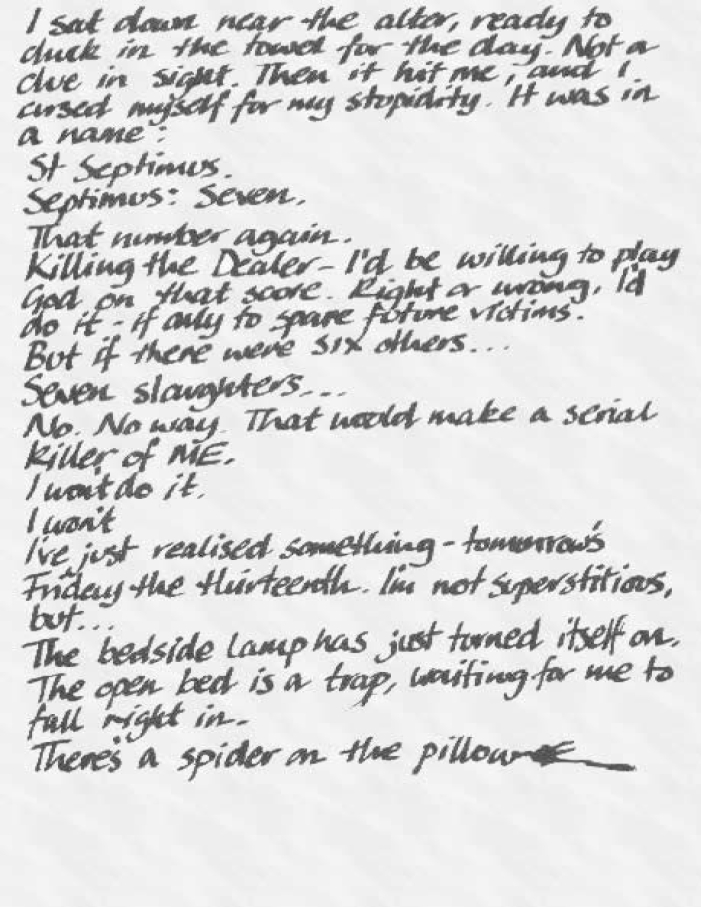 I sat down near the alter, ready to
chuck in the towel for the day. Not a
clue in sight. Then it hit me, and I
cursed myself for my stupidity. It was in
a name:
St Septimus.
Septimus: Seven.
That number again.
Killing the Dealer - I'd be willing to play
God on that score. Right or wrong, I'd
do it - if only to spare future victims.
But if there were six others...
Seven slaughters...
No. No way. That would make a serial
killer of ME.
I won't do it.
I won't
I've just realised something - tomorrow's
Friday the thirteenth. I'm not superstitious,
but...
The bedside lamp has just turned itself on.
The open bed is a trap, waiting for me to
fall right in.
There's a spider on the pillow